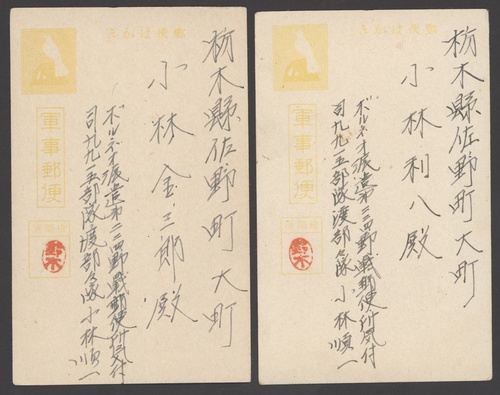 郵便はがき
栃木縣佐野町大町
小林金三郎殿
ボルネオ派遣第三四野戰郵便所気付
司九九一五部隊渡部隊 小林順一
軍事郵便
鈴木
郵便はがき
栃木縣佐野町大町
小林利八殿
ボルネオ派遣第三四野戰郵便所気付
司九九一五部隊渡部隊 小林順一
軍事郵便
鈴木